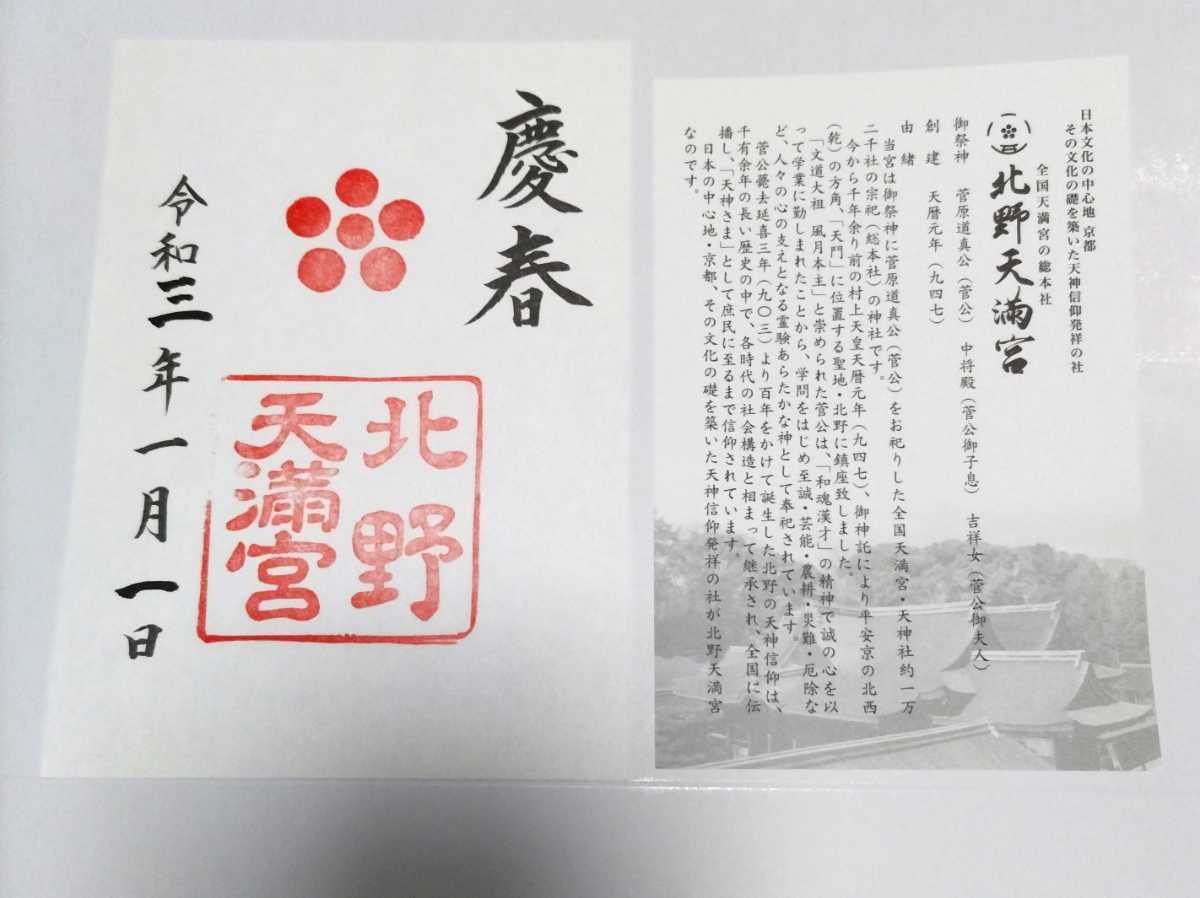 慶春
北野
天満宮
令和三年一月一日
日本文化の中心地 京都
その文化の礎を築いた天神信仰発祥の社
全国天満宮の総本社
北野天満宮
御祭神 菅原道真公（菅公） 中将殿（菅公御子息） 吉祥女（菅公御夫人）
創建 天暦元年（九四七）
由緒
当宮は御祭神に菅原道真公（菅公）をお祀りした全国天満宮・天神社約一万
二千社の宗祀（総本社）の神社です。
今から千年余り前の村上天皇天暦元年（九四七）、御神託により平安京の北西
（乾）の方角、「天門」に位置する聖地・北野に鎮座致しました。
「文道大祖 風月本主」と崇められた菅公は、「和魂漢才」の精神で誠の心を以
って学業に勤しまれたことから、学問をはじめ至誠・芸能・農耕・災難・厄除な
ど、人々の心の支えとなる霊験あらたかな神として奉祀されています。
菅公薨去延喜三年（九〇三）より百年をかけて誕生した北野の天神信仰は、
千有余年の長い歴史の中で、各時代の社会構造と相まって継承され、全国に伝
播し、「天神さま」として庶民に至るまで信仰されています。
日本の中心地・京都、その文化の礎を築いた天神信仰発祥の社が北野天満宮
なのです。